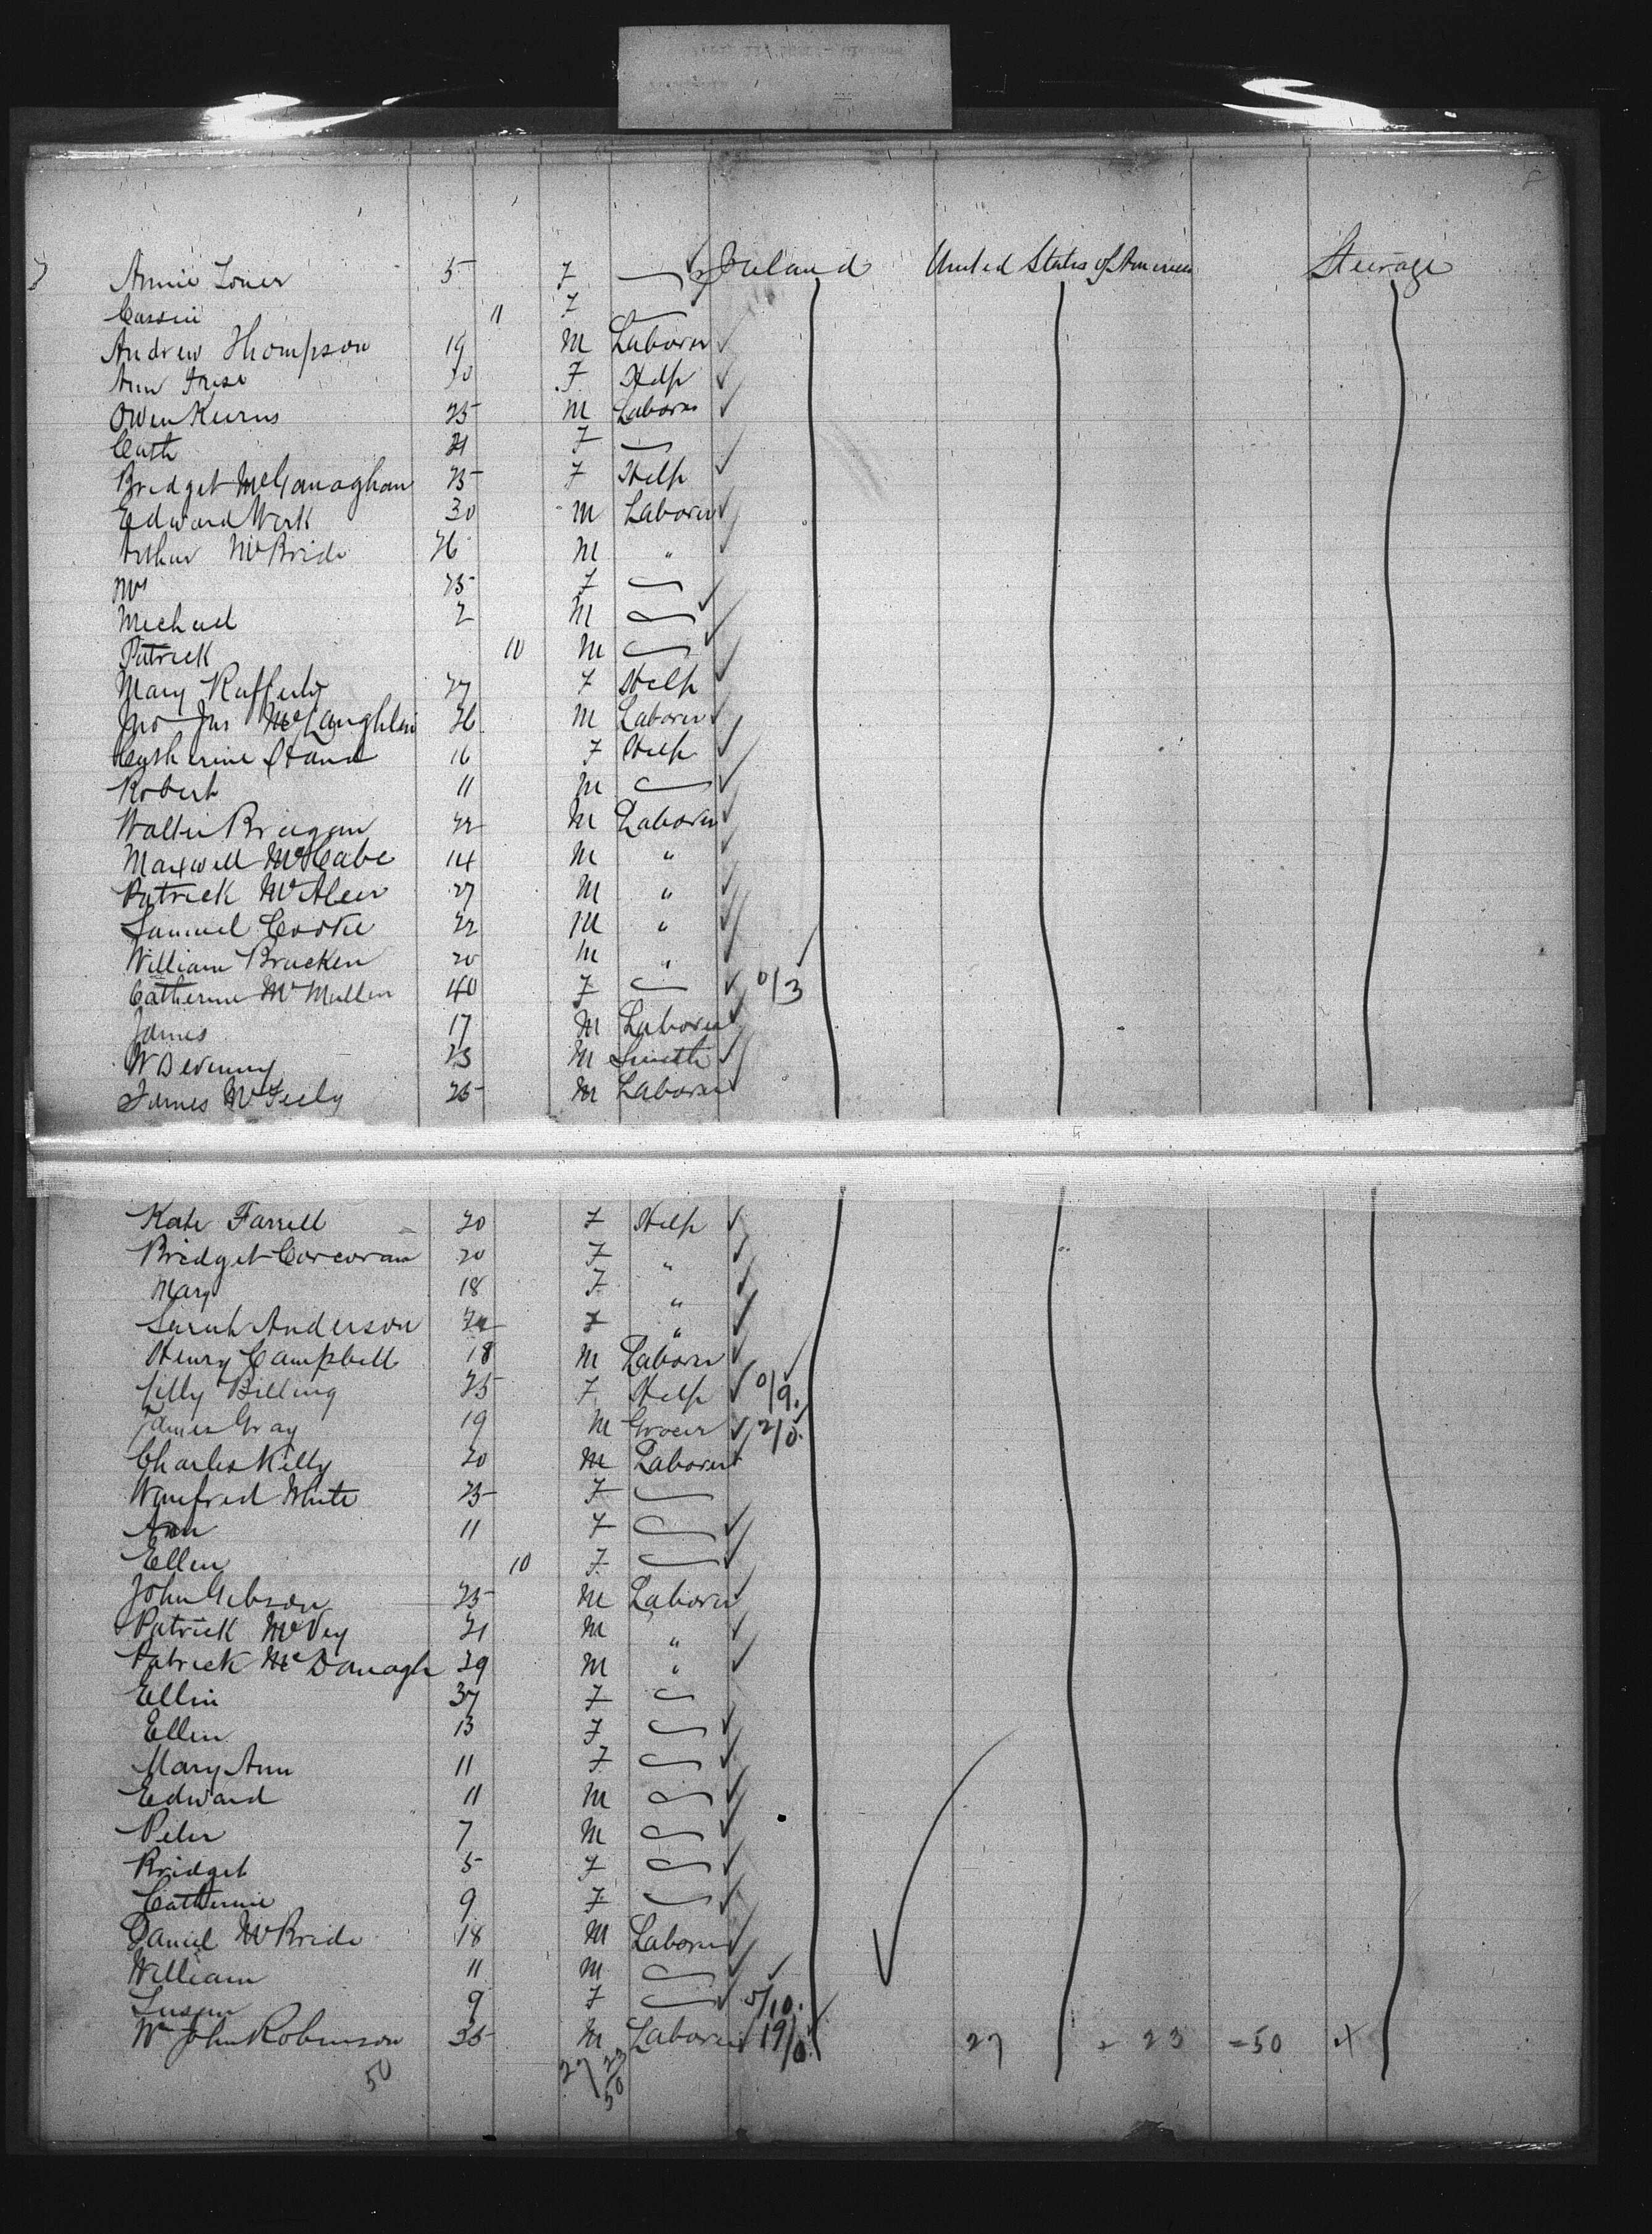 Annie 5 F — Ireland United States of America Steerage
Cassie 11 F —
Andrew Thompson 19 M Laborer
Ann 20 F Help
Owen Kerns 25 M Laborer
Cath 21 F —
Bridget McGanaghan 25 F Help
Edward Work 30 M Laborer
Arthur McBride 26 M "
Mrs 25 F —
Michael 2 M —
Patrick 10 M —
Mary Rafferty 27 F Help
Jno Jas McLaughlin 26 M Laborer
Catherine 16 F Help
Robert 11 M —
Walter Breegan 22 M Laborer
Maxwell McCabe 14 M "
Patrick McAleer 27 M "
Samuel Cooke 22 M "
William Bracken 20 M "
Catherine McMullen 40 F — 0/3
James 17 M Laborer
W Devenny 23 M Smith
James McFeely 25 M Laborer
Kate Farrell 20 F Help
Bridget Corcoran 20 F "
Mary 18 F "
Sarah Anderson F "
Henry Campbell 18 M Laborer
Lilly Billing 25 F Help 0/9.
James Gray 19 M Grocer 2/0.
Charles Kelly 20 M Laborer
Winefred White 25 F —
Ann 11 F —
Ellen 10 F —
John Gibson 25 M Laborer
Patrick McVey 21 M "
Patrick McDanagh 39 M "
Ellin 37 F —
Ellen 13 F —
Mary Ann 11 F —
Edward 11 M —
Peter 7 M —
Bridget 5 F —
Catherine 9 F —
Daniel McBride 18 M Laborer
William 11 M —
Susan 9 F — 5/10.
Wm John Robinson 35 M Laborer 19/0. 27 - 23 =50 X
50 27/23 50